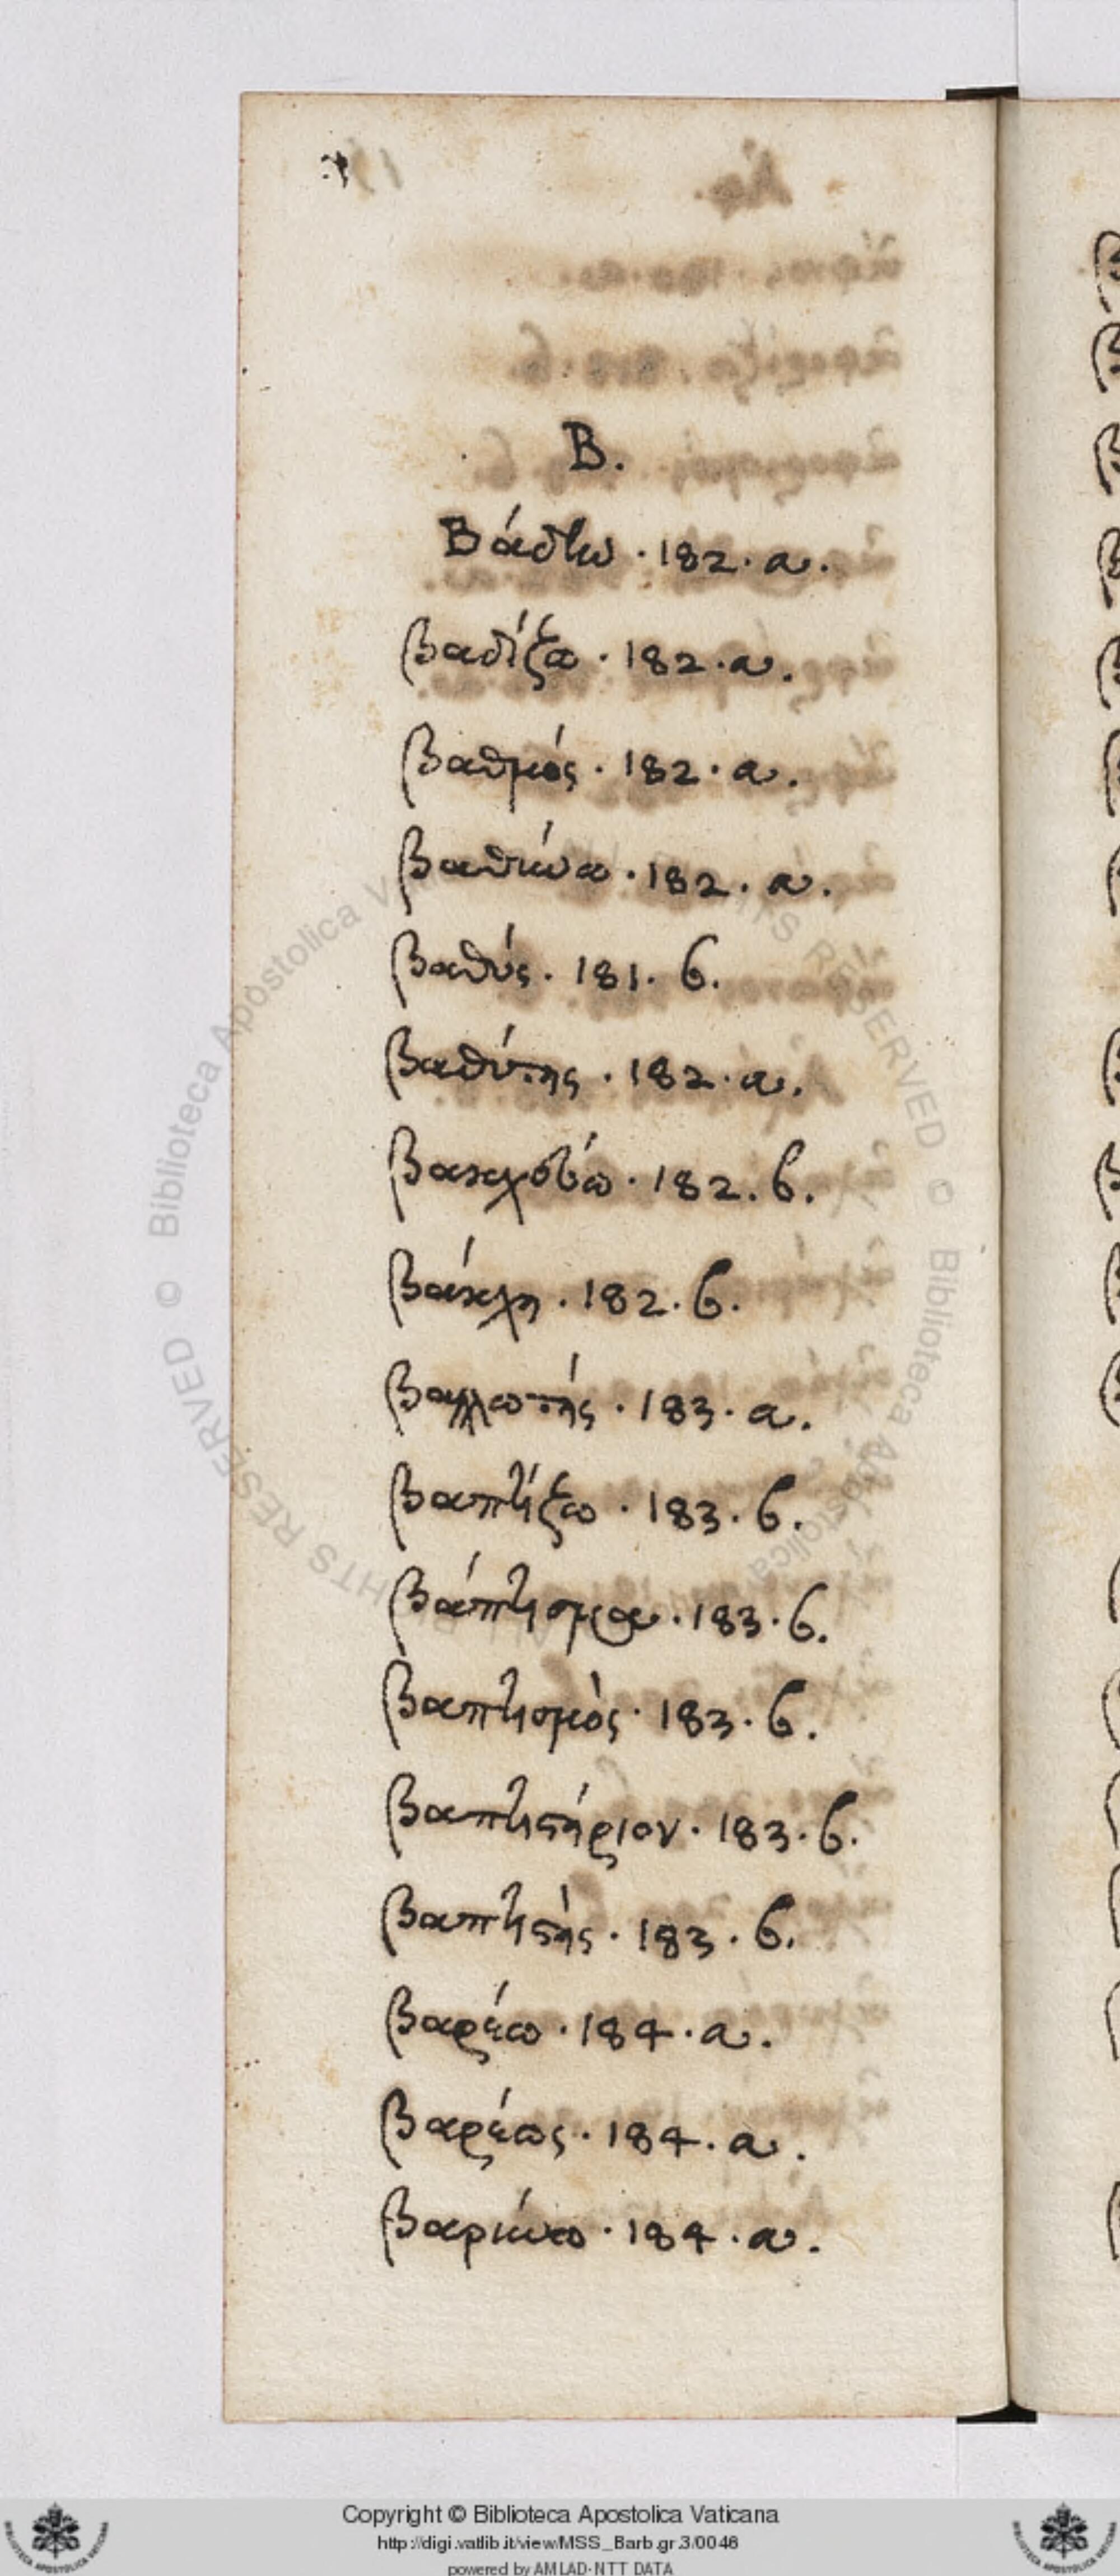 B.
Βάδην · 182 · a.
βαδίζω · 182 · a.
βαθμός · 182 · a.
βαθύνω · 182 · a.
βαθύς · 181 · b.
βαθύτης · 182 · a.
182 · b.
182 · b.
183 · a.
βαπτίζω · 183 · b.
βάπτισμα · 183 · b.
βαπτισμὸς · 183 · b.
βαπτιστήριον · 183 · b.
βαπτιστὴς · 183 · b.
βαρέω · 184 · a.
βαρέως · 184 · a.
βαρύνω · 184 · a.
© Biblioteca Apostolica Vaticana
Copyright © Biblioteca Apostolica Vaticana
http://digi.vatlib.it/view/MSS_Barb.gr.3/0046
powered by AMLAD-NTT DATA